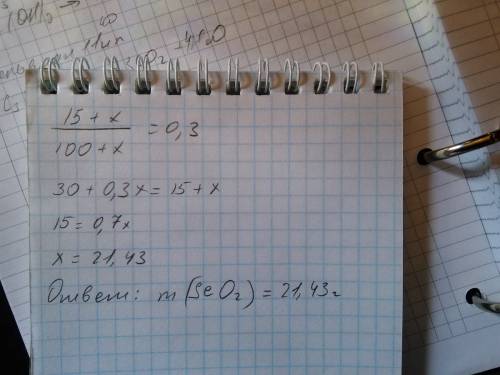 15 + x
100 + x
= 0,3
30 + 0,3x = 15 + x
15 = 0,7x
x = 21,43
Ответ: m(SeO₂) = 21,43г